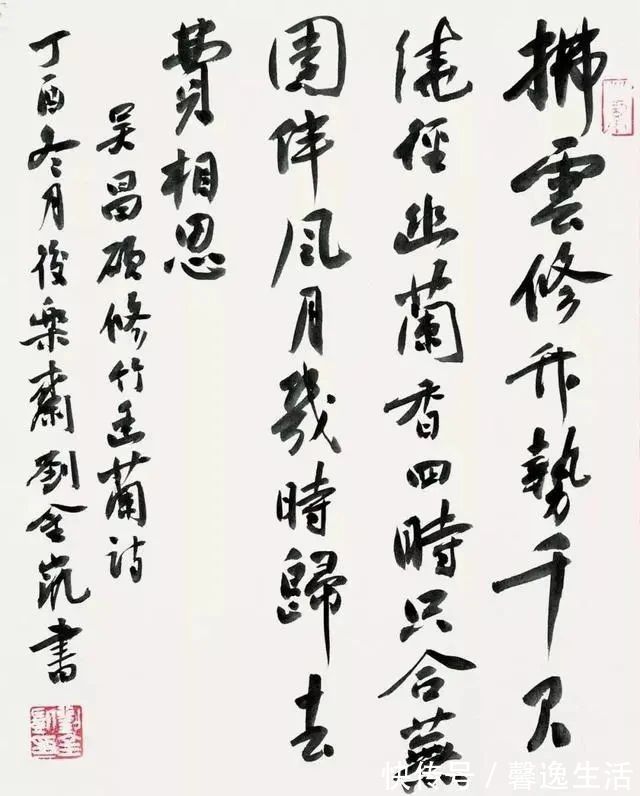 拂雲修竹勢千尺
繞徑幽蘭香四時只合蕪
園伴風月幾時歸去
費相思
吳昌碩修竹幽蘭詩
丁酉冬月後樂齋劉金凱書
快传号/馨逸生活